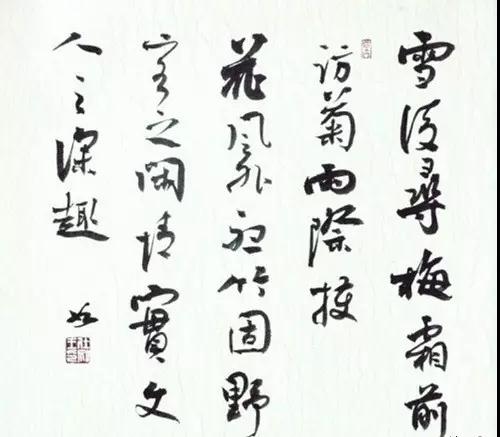 雪後尋梅霜前
訪菊雨際護
風外聽竹固野
客之閑情實文
人之深趣